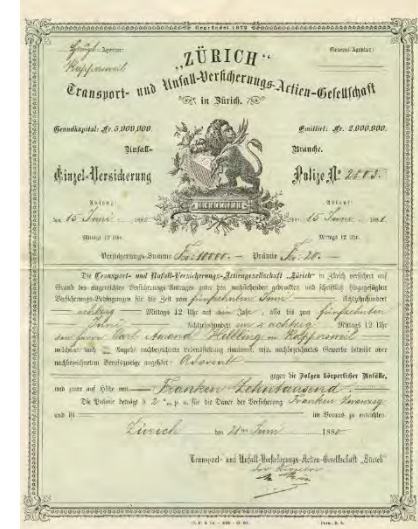 Gegründet 1872
Agentur:
General-Agentur:
Rapperswil
„ZÜRICH“
Transport- und Unfall-Versicherungs-Actien-Gesellschaft
in Zürich.
Grundkapital: Fr. 5,000,000.
Emittiert: Fr. 2,000,000.
Unfall-
Branche.
Einzel-Versicherung
Polize №
Anfang:
Ablauf:
den 15 Juni
den 15 Juni 1881.
Mittags 12 Uhr.
Mittags 12 Uhr.
Versicherungs-Summe Frs. 10000. — Prämie Frs. 20. —
Die Transport- und Unfall-Versicherungs-Actiengesellschaft „Zürich“ in Zürich versichert auf
Grund des eingereichten Versicherungs-Antrages unter den nachstehenden gedruckten und schriftlich eingefügten
Versicherungs-Bedingungen für die Zeit vom fünfzehnten Juni Achtzehnhundert
achtzig Mittags 12 Uhr auf ein Jahr, also bis zum fünfzehnten
Juni Achtzehnhundert ein & achtzig Mittags 12 Uhr
den Herrn Carl Helbling in Rapperswil
gegen die Folgen körperlicher Unfälle,
und zwar auf Höhe von Franken Zehntausend.
Die Prämie beträgt 2 ‰ p. a. für die Dauer der Versicherung Franken Zwanzig
und ist im Voraus zu entrichten.
Zürich den Juni 1880
Transport- und Unfall-Versicherungs-Actien-Gesellschaft „Zürich“